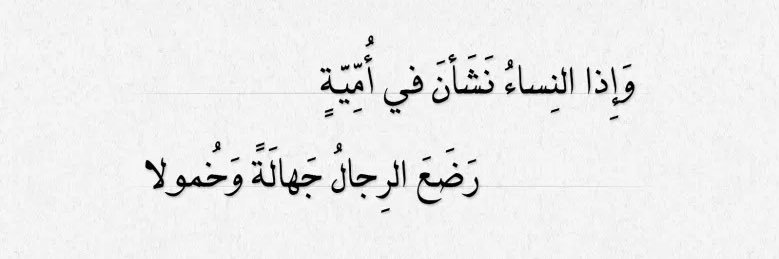 وَإِذا النِساءُ نَشَأنَ في أُمِّيَّةٍ
رَضَعَ الرِجالُ جَهالَةً وَخُمولا